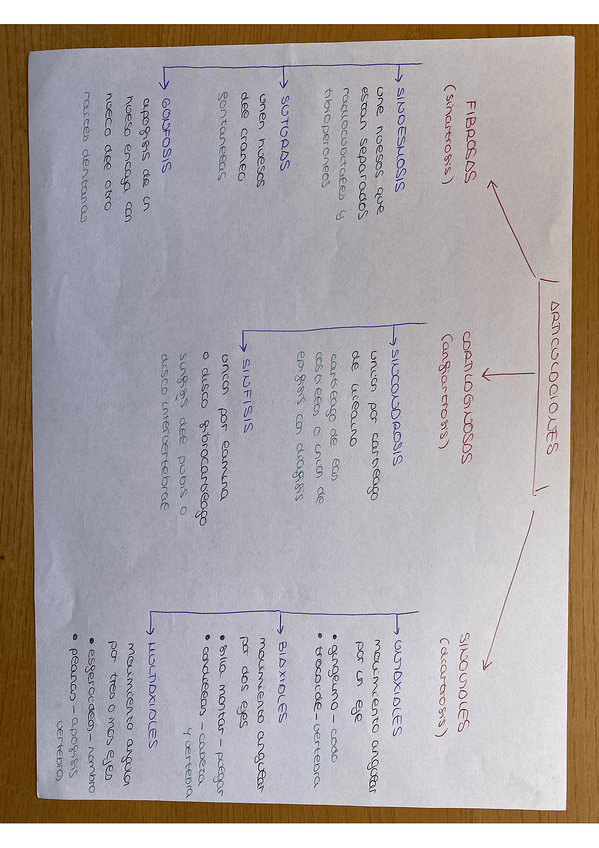 ARTICULACIONES
FIBROSAS
(sinartrosis)
SINDESMOSIS
une huesos que
estan separados
radiocubitales y
tibioperoneos
SUTURAS
unen huesos
del craneo
fontanelas
GONFOSIS
apofisis de un
hueso encaja con
hueco del otro
raices dentarias
CARTILAGINOSAS
(anfiartrosis)
SINCONDROSIS
union por cartilago
de hialino
cartilago de las
costillas o union de
epifisis con diafisis
SINFISIS
union por lamina
o disco fibrocartilago
sinfisis del pubis o
disco intervertebral
SINOVIALES
(diartrosis)
UNIAXIALES
movimiento angular
por un eje
• ginglimo - codo
• trocoide - vertebra
BIAXIALES
movimiento angular
por dos ejes
• silla montar - pulgar
• condileas - cabeza
y vertebra
MULTIAXIALES
movimiento angular
por tres o mas ejes
• esferoideas - hombro
• planas - apofisis
vertebras